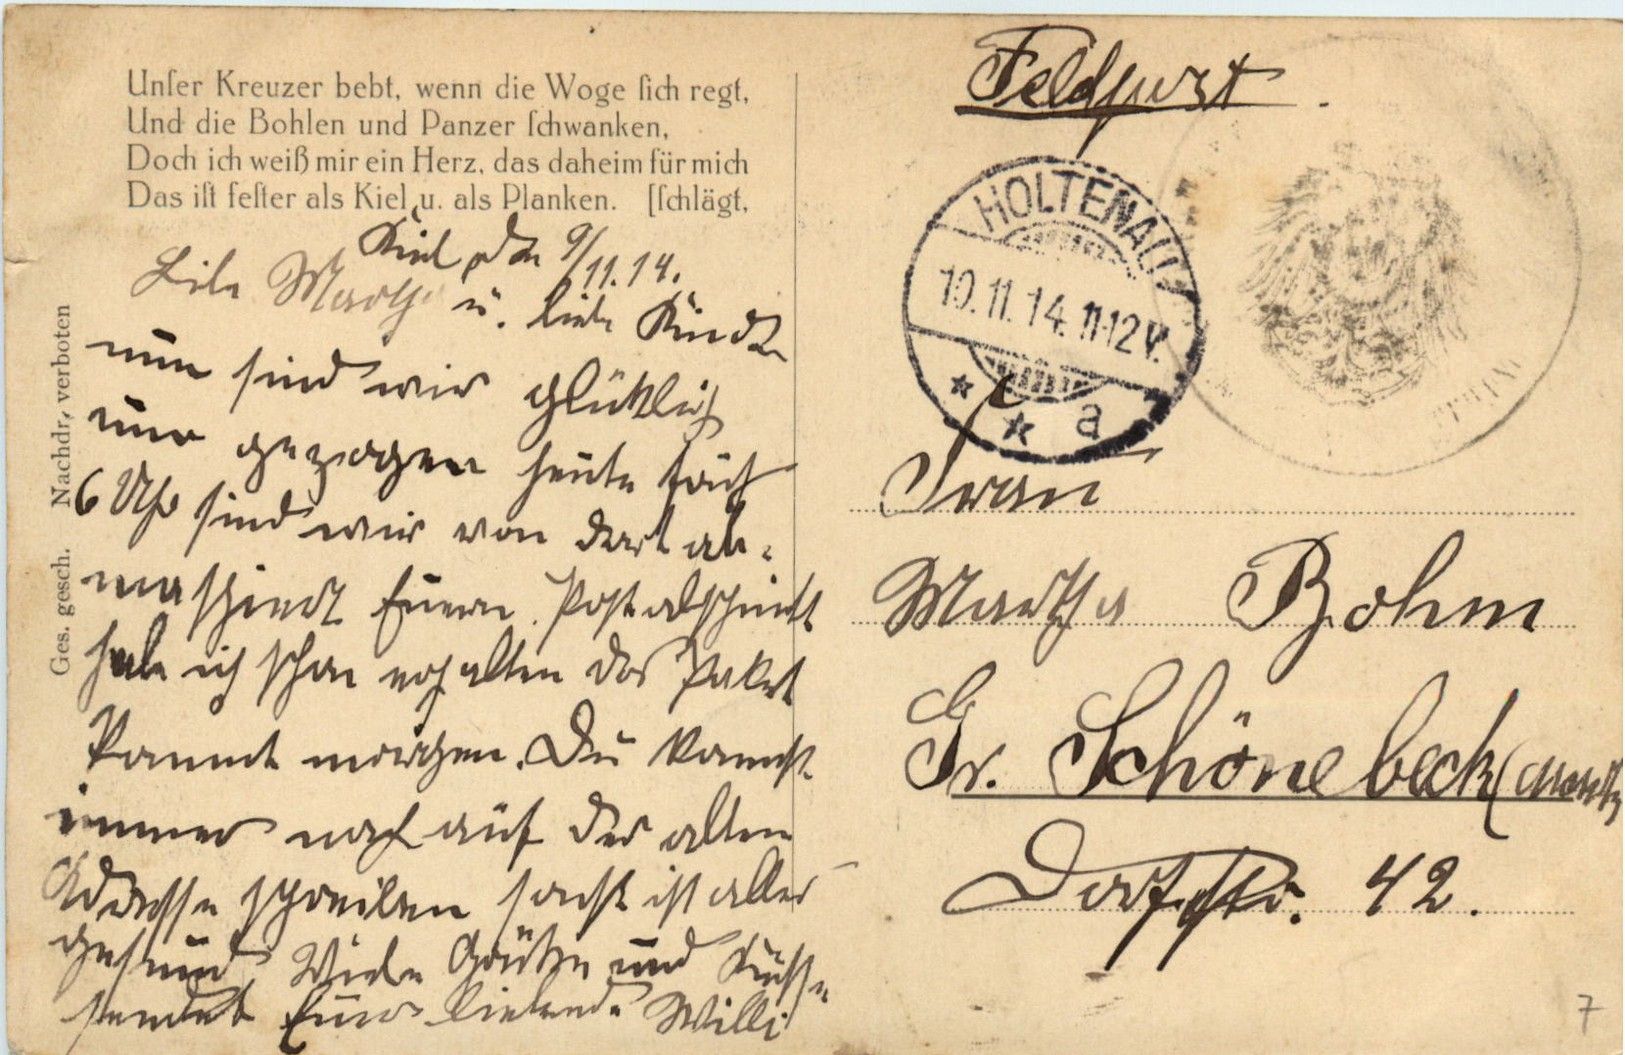 Unſer Kreuzer bebt, wenn die Woge ſich regt,
Und die Bohlen und Panzer ſchwanken,
Doch ich weiß mir ein Herz, das daheim für mich
Das iſt feſter als Kiel u. als Planken. [ſchlägt,
Ges. gesch. Nachdr. verboten
Kiel, den 9/11.14.
Liebe Martha u. liebe Kinder
nun sind wir glücklich
um gezogen heute früh
6 Uhr sind wir von dort ab-
maschiert Euern Postabschnitt
habe ich schon erhalten das Paket
kommt morgen. Du kannst
immer noch auf der alten
Adresse schreiben sonst ist alles
gesund Viele Grüße und Küsse
sendet Euer liebender Willi
Feldpost.
HOLTENAU
10.11.14. 11-12V.
* * a
Frau
Martha Böhm
Gr. Schönebeck (
Dorfstr. 42.
7